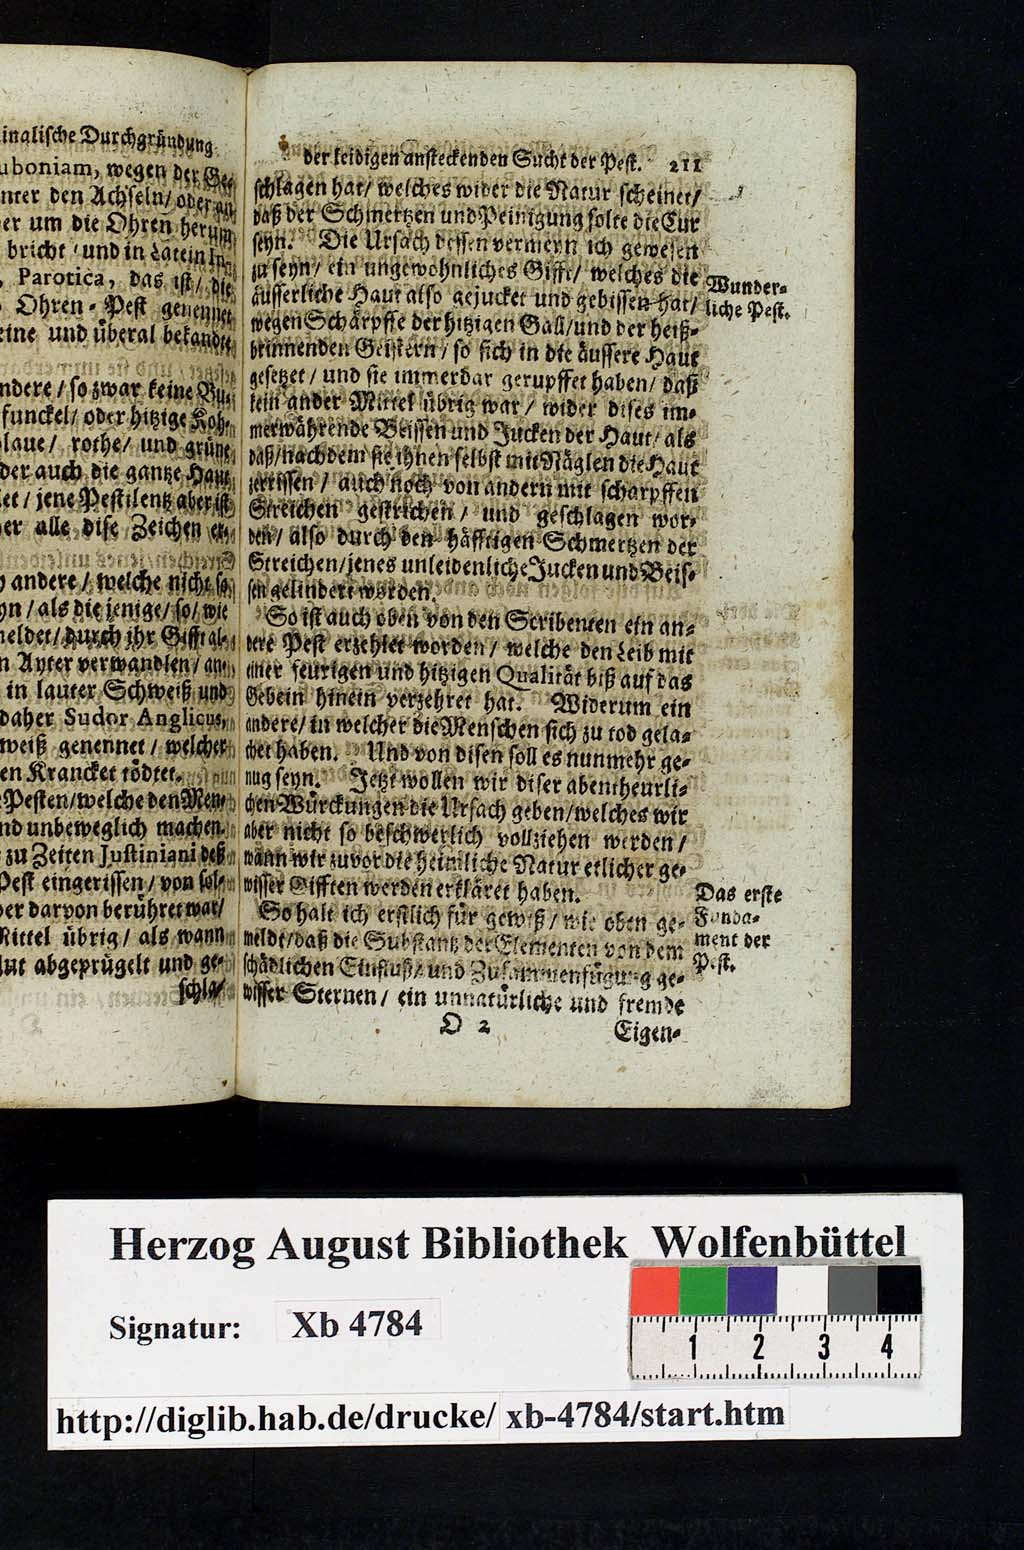 inalische Durchgründung
uboniam, wegen der
nter den Achseln/ oder an
er um die Ohren herum
bricht / und in Latein
Parotica, das ist/ die
Ohren-Pest genennet
eine und überal bekandte
ndere / so zwar keine Bu-
funckel/ oder hitzige Koh-
laue/ rothe/ und grüne
der auch die gantze Haut
et / jene Pestilentz aber ist
er alle dise Zeichen
andere / welche nicht so
yn / als die jenige/ so/ wie
meldet/ durch ihr Gifft
n Ayter verwandlen /
in lauter Schweiß und
daher Sudor Anglicus,
weiß genennet / welcher
en Krancket tödtet.
Pesten/ welche den Men-
nd unbeweglich machen.
zu Zeiten Justiniani deß
Pest eingerissen / von sol-
er darvon berühret war/
Mittel übrig / als wann
lut abgeprügelt und ge-
schla-
der leidigen ansteckenden Sucht der Pest. 211
schlagen hat/ welches wider die Natur scheinet/
daß der Schmertzen und Peinigung solte die Cur
seyn. Die Ursach dessen vermeyn ich gewesen
zu seyn/ ein ungewohnliches Gifft/ welches die
äusserliche Haut also gejucket und gebissen hat/
wegen Schärpffe der hitzigen Gall/ und der heiß-
brinnenden Geistern / so sich in die äussere Haut
gesetzet / und sie immerdar gerupffet haben/ daß
kein ander Mittel übrig war / wider dises im-
merwährende Beissen und Jucken der Haut/ als
daß/ nachdem sie ihnen selbst mit Näglen die Haut
zerrissen / auch noch von andern mit scharpffen
Streichen gestrichen / und geschlagen wor-
den / also durch den häfftigen Schmertzen der
Streichen/ jenes unleidenliche Jucken und Beis-
sen gelindert worden.
So ist auch oben von den Scribenten ein an-
dere Pest erzehlet worden / welche den Leib mit
einer feurigen und hitzigen Qualität biß auf das
Gebein hinein verzehret hat. Widerum ein
andere / in welcher die Menschen sich zu tod gela-
chet haben. Und von disen soll es nunmehr ge-
nug seyn. Jetzt wollen wir diser abentheurli-
chen Würckungen die Ursach geben/ welches wir
aber nicht so beschwerlich vollziehen werden /
wann wir zuvor die heimliche Natur etlicher ge-
wisser Gifften werden erkläret haben.
So halt ich erstlich für gewiß/ wie oben ge-
meldt/ daß die Substantz der Elementen von dem
schädlichen Einfluß/ und Zusammenfügung ge-
wisser Sternen / ein unnatürliche und fremde
O 2 Eigen-
Wunder-
liche Pest.
Das erste
Funda-
ment der
Pest.
Herzog August Bibliothek Wolfenbüttel
Signatur: Xb 4784
1 2 3 4
http://diglib.hab.de/drucke/ xb-4784/start.htm